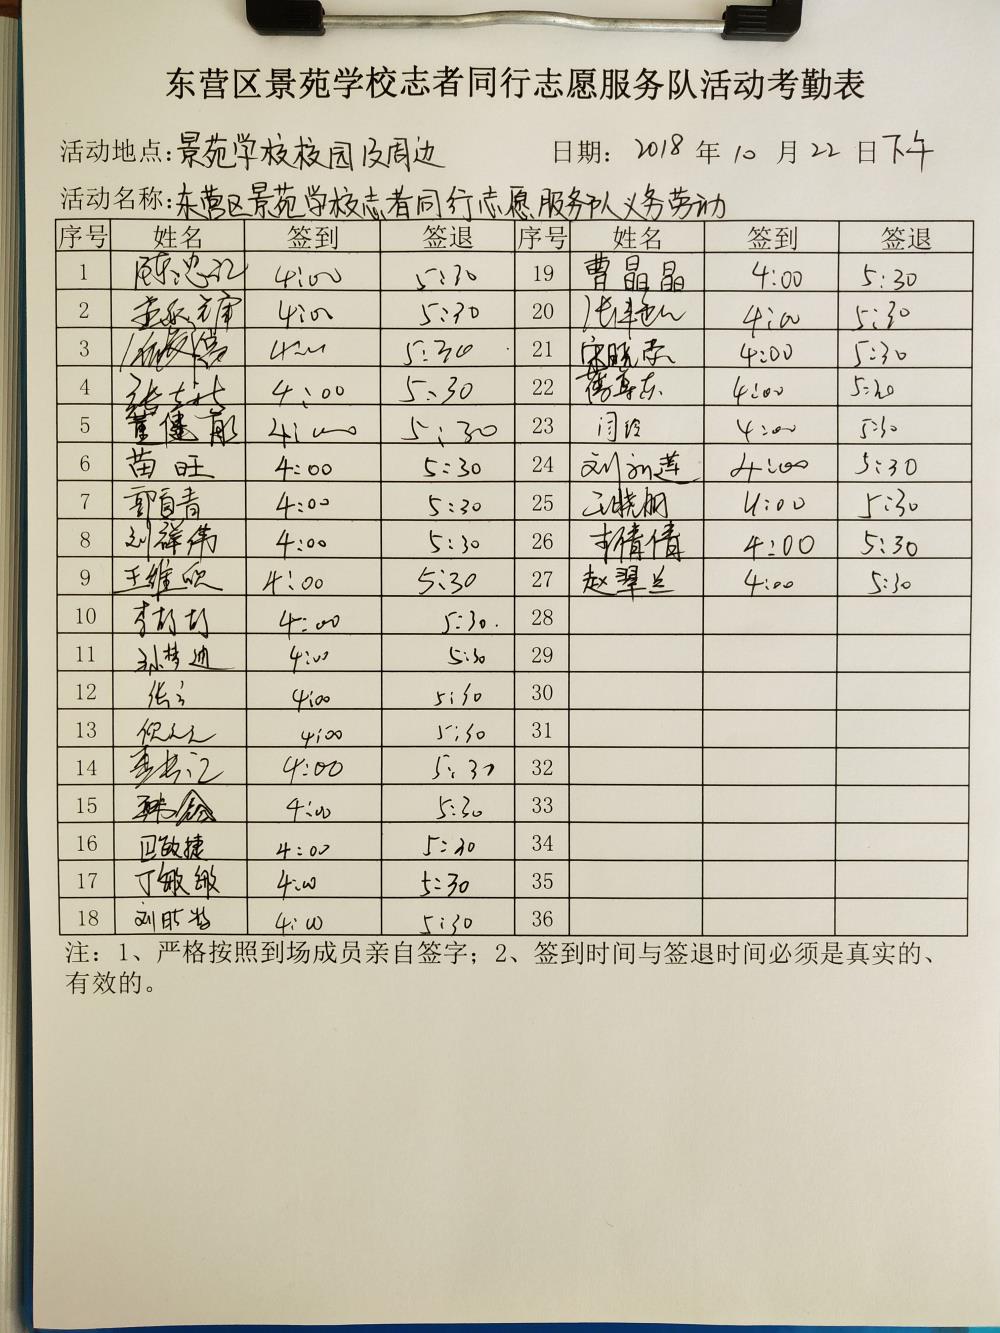 东营区景苑学校志者同行志愿服务队活动考勤表
活动地点:景苑学校校园及周边 日期: 2018 年 10 月 22 日下午
活动名称:东营区景苑学校志者同行志愿服务队义务劳动
序号 姓名 签到 签退 序号 姓名 签到 签退
1 4:00 5:30 19 曹晶晶 4:00 5:30
2 4:00 5:30 20 4:00 5:30
3 4:00 5:30 21 宋晓燕 4:00 5:30
4 4:00 5:30 22 4:00 5:30
5 董健 4:00 5:30 23 闫玲 4:00 5:30
6 苗旺 4:00 5:30 24 刘 莲 4:00 5:30
7 4:00 5:30 25 王晓桐 4:00 5:30
8 刘祥伟 4:00 5:30 26 李倩倩 4:00 5:30
9 王维欣 4:00 5:30 27 赵翠兰 4:00 5:30
10 李 4:00 5:30. 28
11 孙梦迪 4:00 5:30 29
12 张 4:00 5:30 30
13 倪 4:00 5:30 31
14 4:00 5:30 32
15 韩 4:00 5:30 33
16 敏捷 4:00 5:30 34
17 丁敏敏 4:00 5:30 35
18 刘 4:00 5:30 36
注：1、严格按照到场成员亲自签字；2、签到时间与签退时间必须是真实的、
有效的。